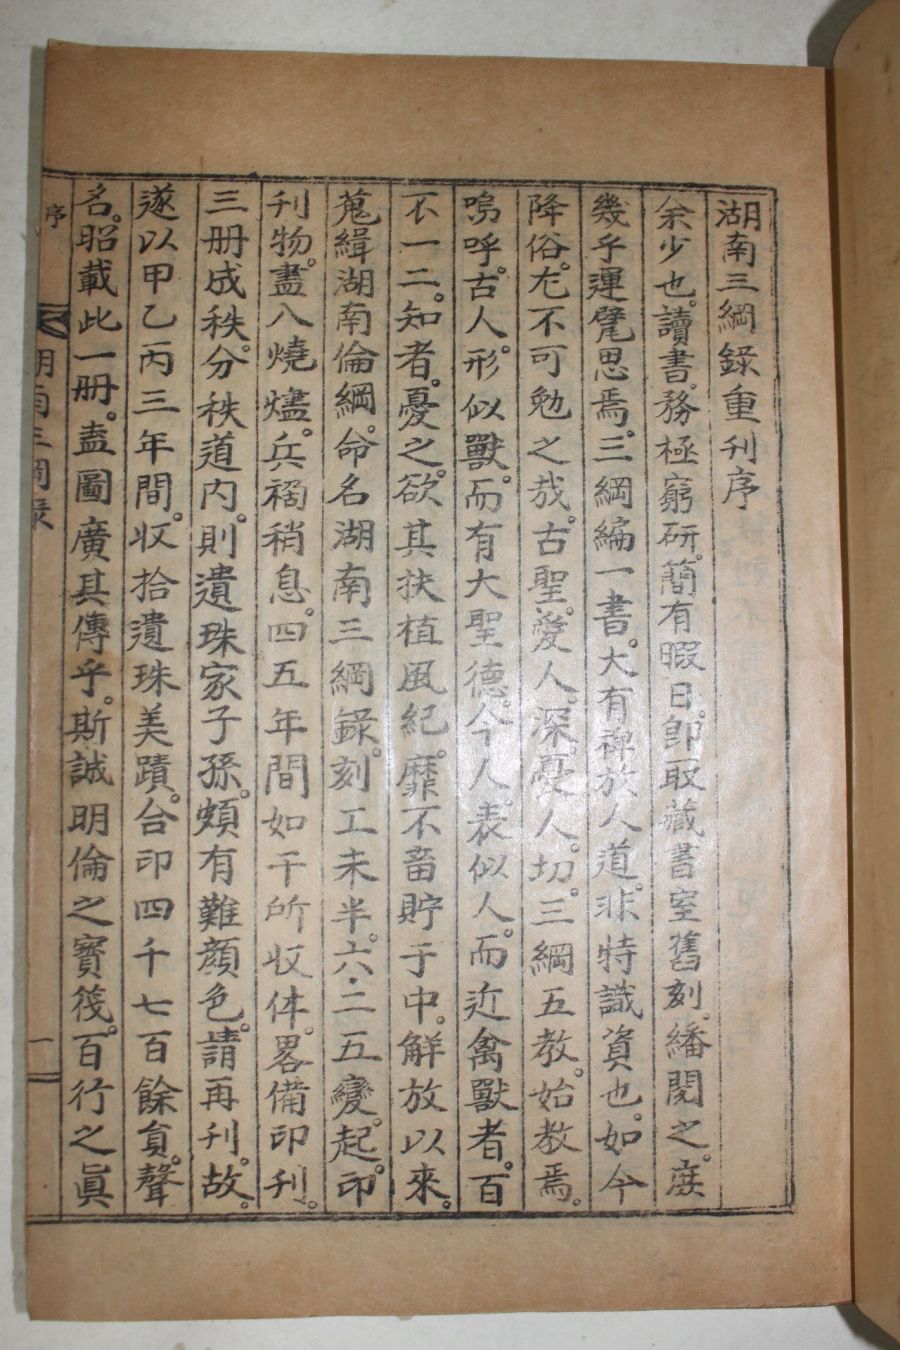 湖南三綱錄重刊序
余少也。讀書。務極窮研。簡有暇日。卽取藏書室舊刻。繙閱之。庶
幾乎運甓思焉。三綱編一書。大有裨於人道。非特識資也。如今
降俗。尤不可勉之哉。古聖。愛人。深。憂人。切。三綱五敎。始敎焉。
嗚呼。古人。形似獸。而有大聖德。今人。表似人。而近禽獸者。百
不一二。知者。憂之。欲其扶植風紀。靡不畜貯于中。解放以來。
蒐緝湖南倫綱。命名湖南三綱錄。刻工未半。六·二五變。起。印
刊物。盡入燒燼。兵禍稍息。四五年間如干所収体。畧備印刊。
三册成秩。分秩道內。則遺珠家子孫。頗有難顔色。請再刊。故。
遂以甲乙丙三年間。収拾遺珠美蹟。合印四千七百餘負。聲
名。昭載此一册。盍圖廣其傳乎。斯誠明倫之寶筏。百行之眞
序 湖南三綱錄 一